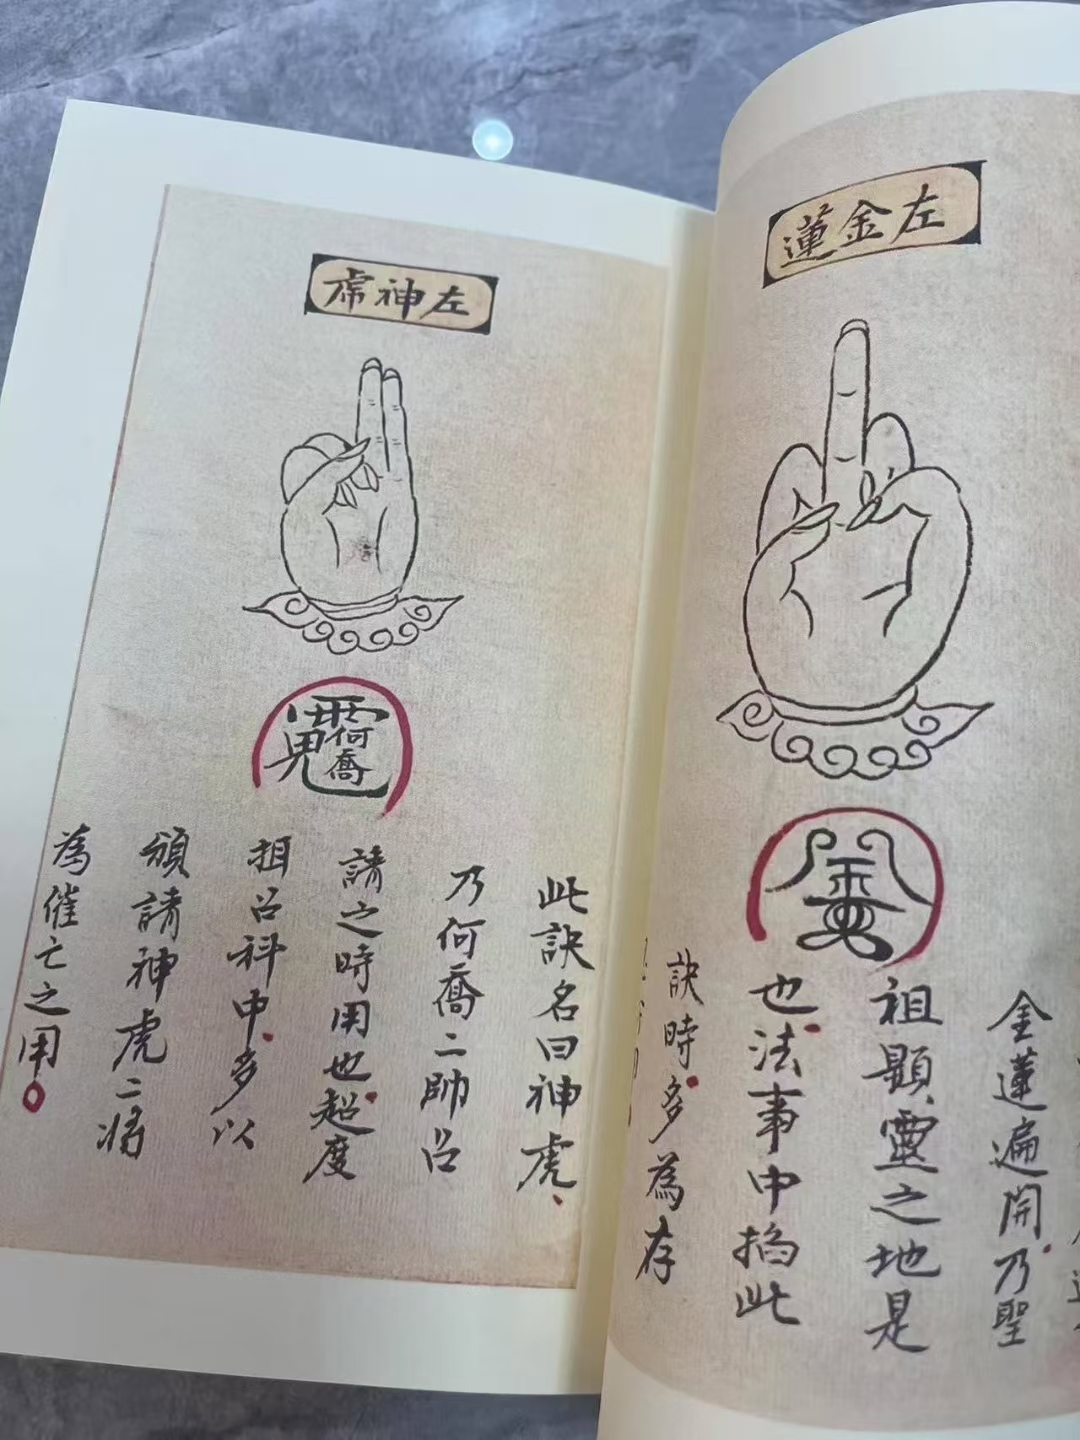 左金蓮
金蓮遍開乃聖
祖顯靈之地是
也法事中掐此
訣時多為存
左神虎
此訣名曰神虎、
乃何喬二帥召
請之時用也超度
招召科中多以
頒請神虎二将
為催亡之用